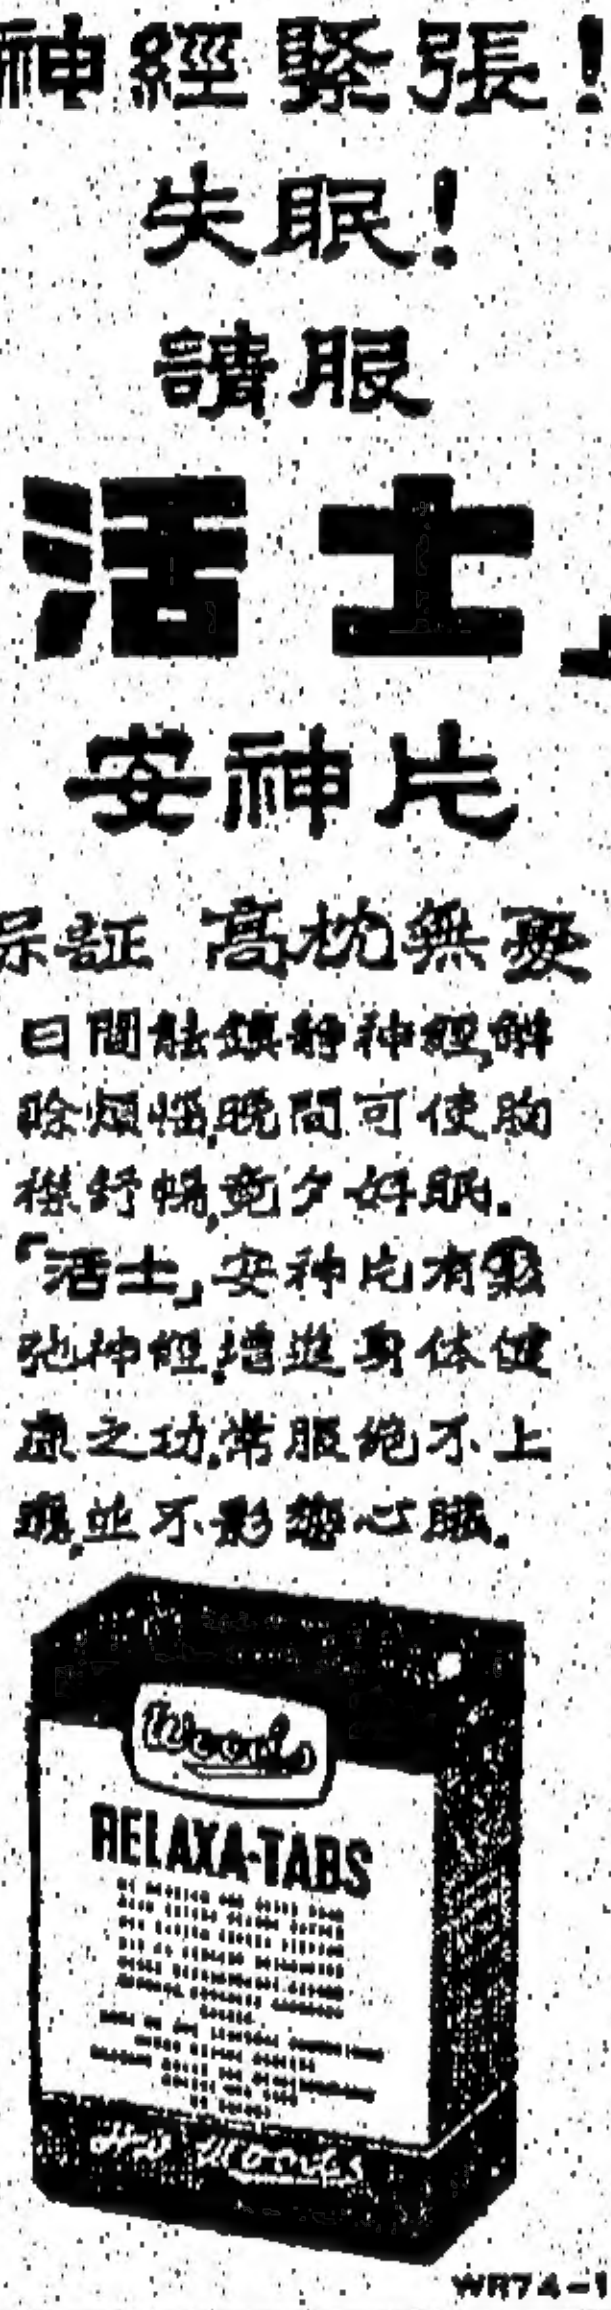 神經緊張!
失眠!
請服
活士
安神片
保証 高枕無憂
日間能鎮靜神經,解
除煩惱,晚間可使胸
襟舒暢,竟夕好眠。
「活士」安神片有鬆
弛神經,增進身体健
康之功,常服絶不上
癮,並不影響心臟。
Woods
RELAXA-TABS
Woods
WR74-1